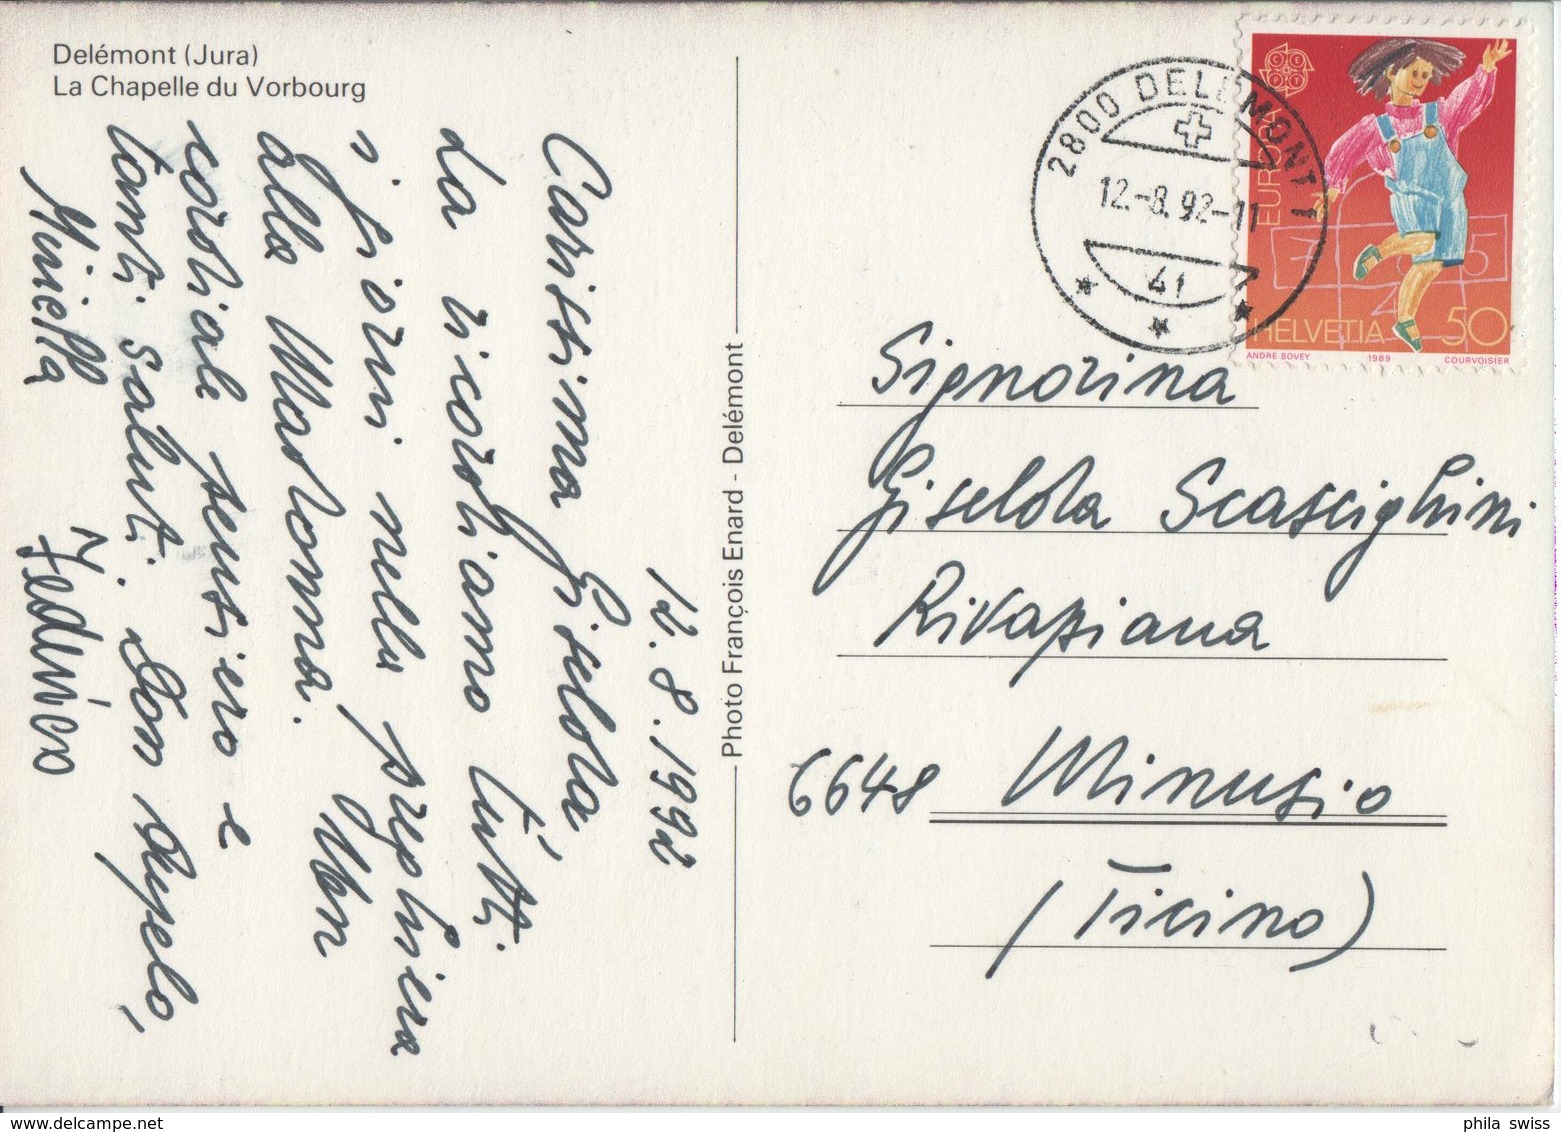 Delémont (Jura)
La Chapelle du Vorbourg
12.8.1992
Carissima Giselda,
La ricordiamo tutti
i giorni nella preghiera
alla Madonna. Un
cordiale pensiero e
tanti saluti. Don
Miriella Fedrico
Photo François Enard - Delémont
2800 DELÉMONT 1
12.-8.92-11
41
CEPT
EUROPA
HELVETIA 50
ANDRE BOVEY 1989 COURVOISIER
Signorina
Giselda Scascighini
Rivapiana
6648 Minusio
(Ticino)
phila swiss
www.delcampe.net